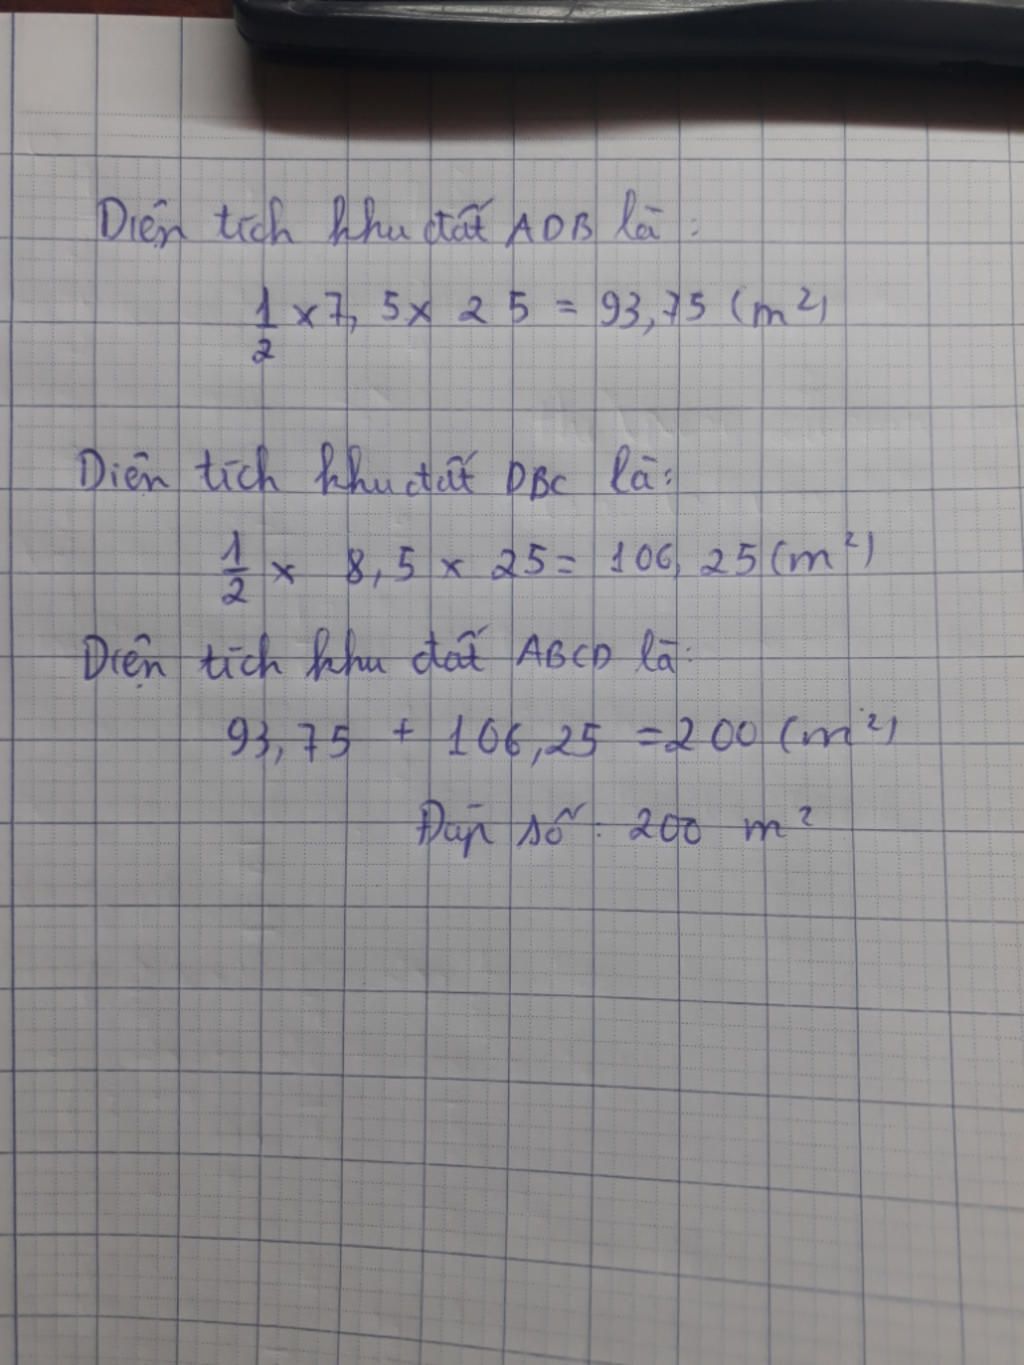 Diện tích khu đất ADB là:
1/2 x 7,5 x 25 = 93,75 (m²)
Diện tích khu đất DBC là:
1/2 x 8,5 x 25 = 106,25 (m²)
Diện tích khu đất ABCD là:
93,75 + 106,25 = 200 (m²)
Đáp số: 200 m²